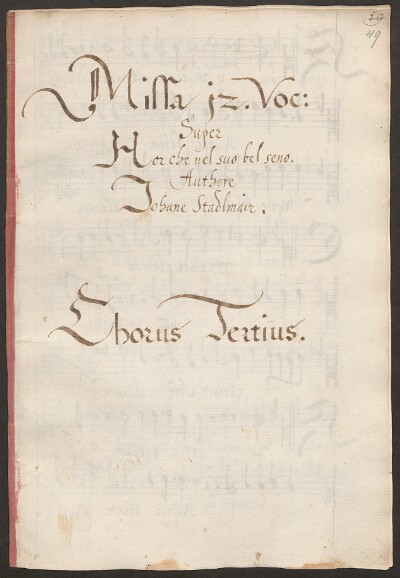 49
Missa jz. Voc:
Super
Hor che nel suo bel seno.
Authore
Johane Stadlmair.
Chorus Tertius.